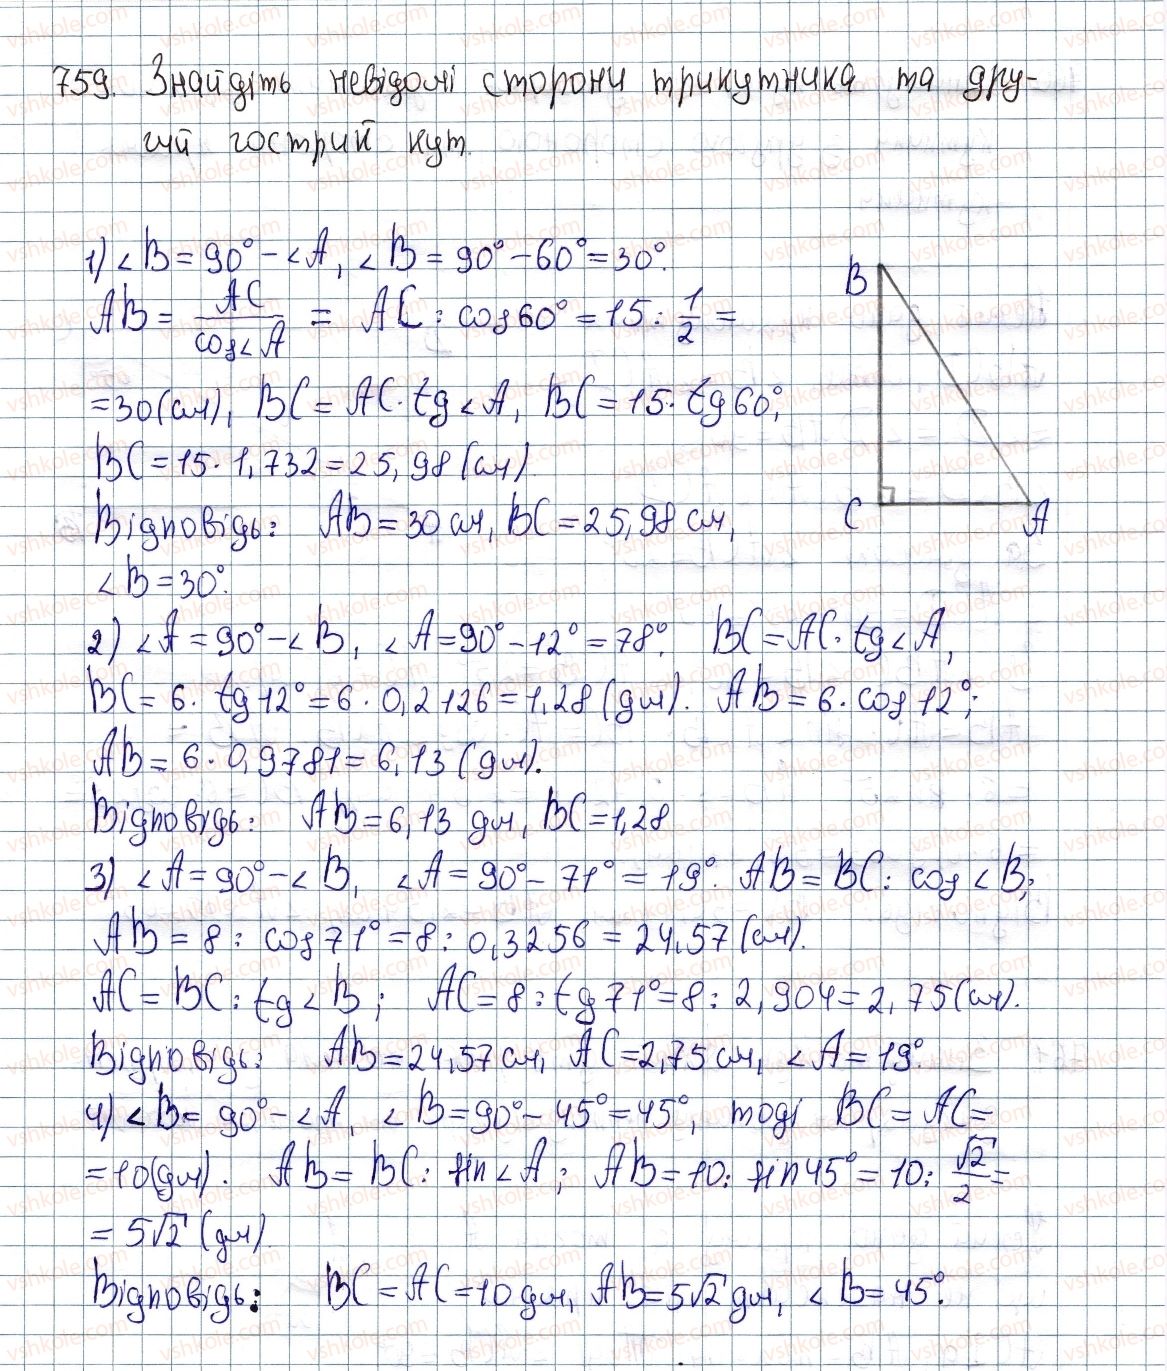 759. Знайдіть невідомі сторони трикутника та дру-
гий гострий кут.
1) ∠B = 90° - ∠A, ∠B = 90° - 60° = 30°.
AB = AC/cos∠A = AC : cos60° = 15 : 1/2 =
= 30 (см), BC = AC · tg∠A, BC = 15 · tg60°,
BC = 15 · 1,732 = 25,98 (см)
Відповідь: AB = 30 см, BC = 25,98 см,
∠B = 30°.
B
C
A
2) ∠A = 90° - ∠B, ∠A = 90° - 12° = 78°. BC = AC · tg∠A,
BC = 6 · tg12° = 6 · 0,2126 = 1,28 (дм). AB = 6 · cos12°;
AB = 6 · 0,9781 = 6,13 (дм).
Відповідь: AB = 6,13 дм, BC = 1,28
3) ∠A = 90° - ∠B, ∠A = 90° - 71° = 19°. AB = BC : cos∠B;
AB = 8 : cos71° = 8 : 0,3256 = 24,57 (см).
AC = BC : tg∠B; AC = 8 : tg71° = 8 : 2,904 = 2,75 (см).
Відповідь: AB = 24,57 см, AC = 2,75 см, ∠A = 19°.
4) ∠B = 90° - ∠A, ∠B = 90° - 45° = 45°, тоді BC = AC =
= 10 (дм). AB = BC : sin∠A; AB = 10 : sin45° = 10 : √2/2 =
= 5√2 (дм)
Відповідь: BC = AC = 10 дм, AB = 5√2 дм, ∠B = 45°.